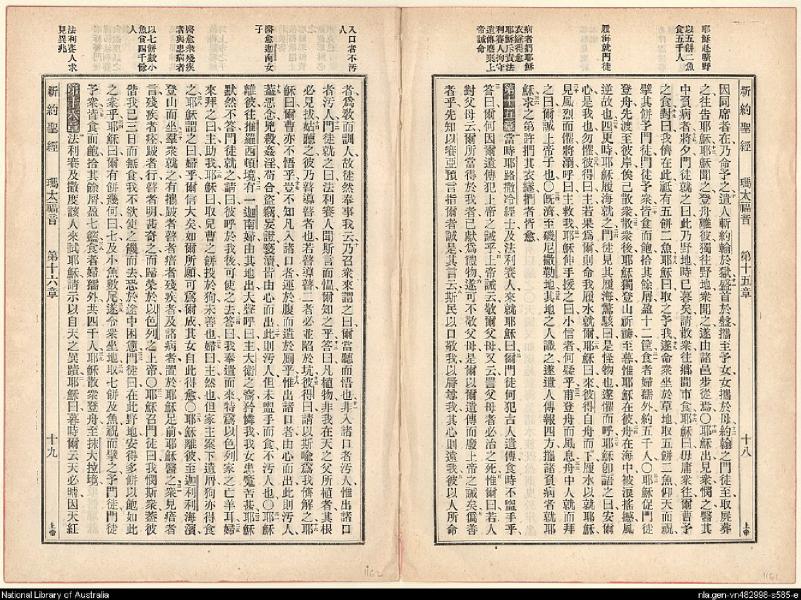 耶穌赴曠野
以五餅二魚
食五千人
履海就門徒
病者捫耶穌
衣襚得愈
耶穌斥責法
利賽人拘守
遺傳廢上
帝誡命
新約聖經 瑪太福音 第十五章 十八 上帝
因同席者在乃命予之遣人斬約翰於獄盛首於盤攜至予女女攜於母約翰之門徒至取屍葬
之往告耶穌耶穌聞之登舟離彼獨往野地衆聞之遂由諸邑步從焉〇耶穌出見衆憫之醫其
中負病者將夕門徒就之曰此乃野地時已暮矣請散衆往鄉間市食耶穌曰毋庸衆往爾曹予
之食對曰我儕在此祗有五餅二魚耶穌曰取之予我遂命衆坐於草地取五餅二魚仰天而祝
擘其餅予門徒門徒予衆皆食而飽拾其餘屑盈十二筐食者婦孺外約五千人〇耶穌促門徒
登舟先渡至彼岸俟己散衆散衆後耶穌獨登山祈禱至暮惟耶穌在彼舟在海中被浪搖撼風
逆故也四更時耶穌履海就之門徒見其履海駭曰是怪物也遂懼而呼耶穌卽語之曰安爾
心是我也勿懼彼得曰主若果爲爾則命我履水就爾耶穌曰來彼得自舟而下履水以就耶穌
見風烈而懼將溺呼曰主救我耶穌伸手援之曰小信者何疑乎甫登舟而風息舟中人就而拜
之曰爾誠上帝子也〇旣濟至磯尼撒勒地其地之人識之遂遣人傳報四方攜諸負病者就耶
穌求之第許捫其衣襚捫者皆愈
第十五章 當時耶路撒冷經士及法利賽人來就耶穌曰爾門徒何犯古人遺傳食時不盥手乎
答曰爾何因爾遺傳犯上帝之誡乎上帝誡云敬爾父母又云詈父母者必治之死惟爾曰若人
對父母云爾所當得於我者已獻爲禮物遂可不敬父母是爾以爾遺傳而廢上帝之誡矣僞善
者乎先知以賽亞預言指爾者誠是其言云斯民以口敬我以脣尊我其心則遠我彼以人所命
入口者不污
人
醫愈迦南女
子
醫愈衆殘疾
者與患病者
以七餅數小
魚食四千餘
人
法利賽人求
見異兆
者爲教而訓人故徒然奉事我云乃召衆來謂之曰爾當聽而悟也非入諸口者污人惟出諸口
者污人門徒就之曰法利賽人聞斯言而慍爾知之乎答曰凡植物非我在天之父所植者其根
必見拔姑聽之彼乃瞽導瞽者也若瞽導瞽二者必並陷於坑彼得曰請以斯喻爲我儕解之耶
穌曰爾曹亦不悟乎豈不知凡入諸口者運於腹而遺於厠乎惟出諸口者由心而出此則污人
蓋惡念兇殺姦淫苟合盜竊妄證褻瀆皆由心而出此則污人但未盥手而食不污人也〇耶穌
離彼往推羅西頓境有一迦南婦由其地出大聲呼曰主大衛之裔矜憐我我女患鬼苦甚耶穌
默然不答門徒就之請曰彼呼於我後可使之去答曰我奉遣而來特爲以色列家之亡羊耳婦
來拜之曰主助我耶穌曰取兒曹之餅投於狗未善也婦曰主然也但家主案下遺屑狗亦得食
之耶穌謂之曰婦乎爾信大矣如爾所願可爲爾成其女自此得愈〇耶穌離彼至迦利利海濱
登山而坐羣衆就之有攜跛者瞽者瘖者殘疾者及諸病者置於耶穌足前耶穌醫之衆見瘖者
言殘疾者痊跛者行瞽者明甚奇之而歸榮於以色列之上帝〇耶穌召門徒曰我憫斯衆蓋彼
偕我已三日而無食我不欲使之饑而去恐於途中困憊門徒曰在此野地安得多餅以飽如此
之衆乎耶穌曰爾有餅幾何曰七及小魚數尾遂命衆坐地取七餅及魚祝而擘之予門徒門徒
予衆皆食而飽拾其餘屑盈七籃食者婦孺外共四千人耶穌散衆登舟至抹大拉境
第十六章 法利賽及撒度該人來試耶穌請示以自天之異蹟耶穌曰暮時爾云天必晴因天紅
新約聖經 瑪太福音 第十六章 十九 上帝
National Library of Australia
nla.gen-vn482998-s585-e